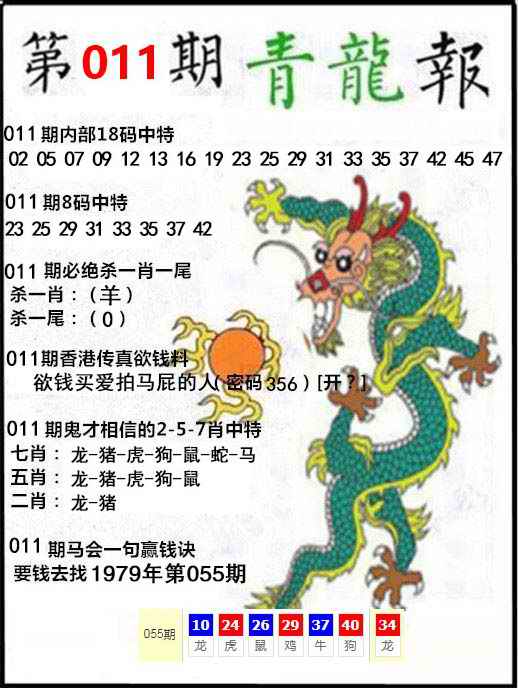 第011期青龍報
011期内部18码中特
02 05 07 09 12 13 16 19 23 25 29 31 33 35 37 42 45 47
011期8码中特
23 25 29 31 33 35 37 42
011 期必绝杀一肖一尾
杀一肖：（羊）
杀一尾：（0）
011期香港传真欲钱料
欲钱买爱拍马屁的人（密码356）[开？]
011期鬼才相信的2-5-7肖中特
七肖： 龙-猪-虎-狗-鼠-蛇-马
五肖： 龙-猪-虎-狗-鼠
二肖： 龙-猪
011 期马会一句赢钱诀
要钱去找1979年第055期
055期 10 24 26 29 37 40 34
龙 虎 鼠 鸡 牛 狗 龙